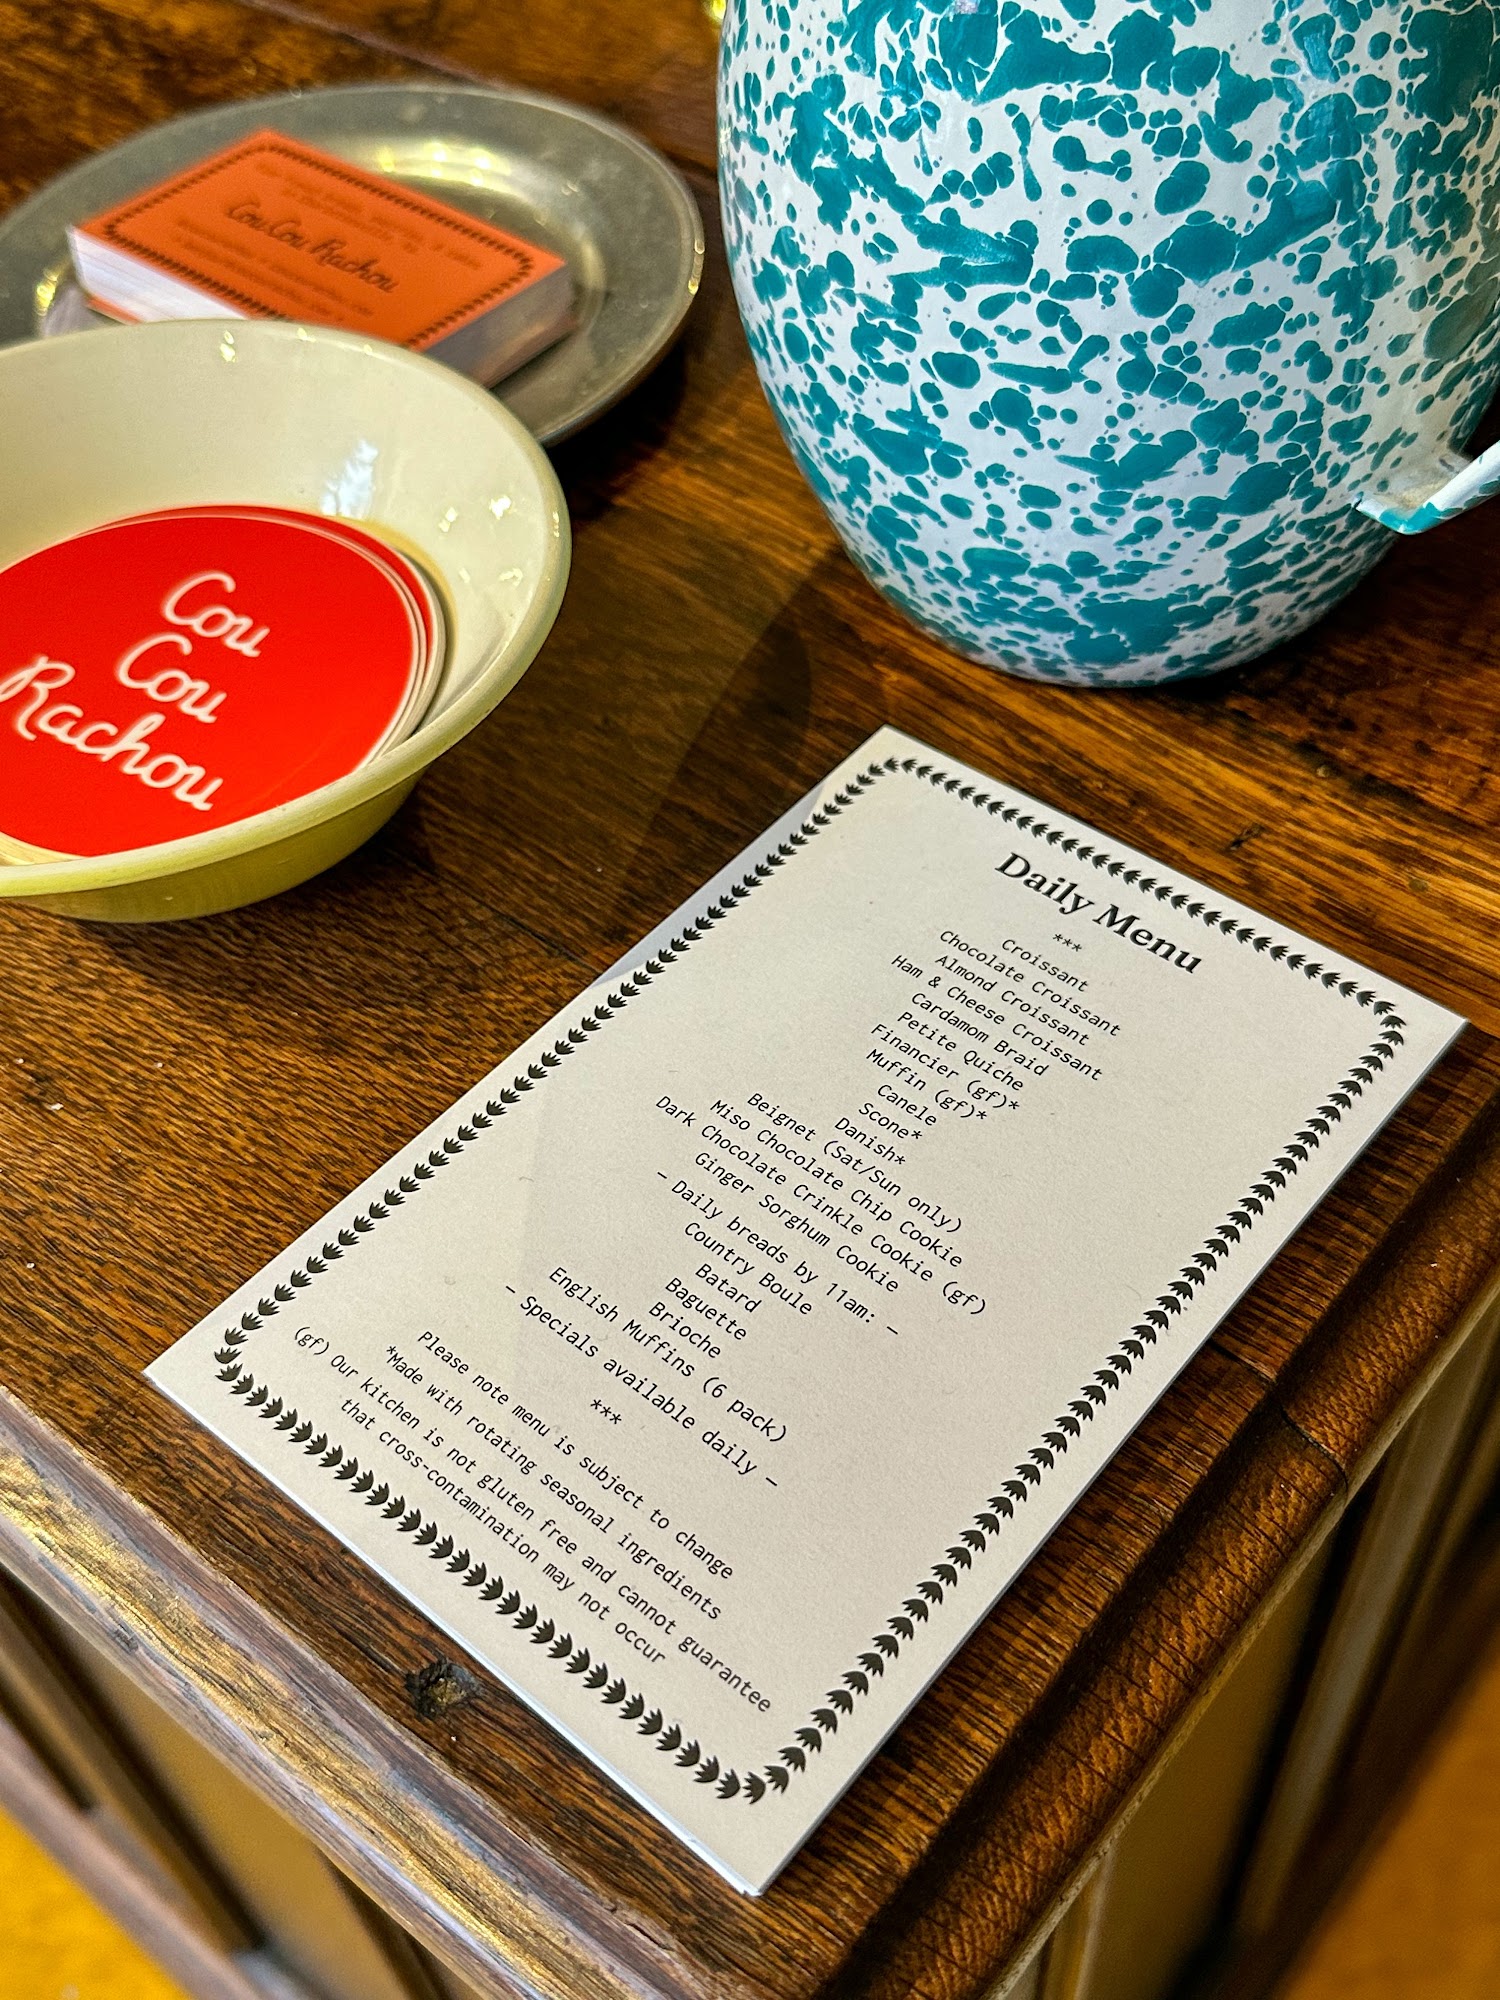 CouCou Rachou
Cou
Cou
Rachou
Daily Menu
***
Croissant
Chocolate Croissant
Almond Croissant
Ham & Cheese Croissant
Cardamom Braid
Petite Quiche
Financier (gf)*
Muffin (gf)*
Canele
Scone*
Danish*
Beignet (Sat/Sun only)
Miso Chocolate Chip Cookie
Dark Chocolate Crinkle Cookie (gf)
Ginger Sorghum Cookie
– Daily breads by 11am: –
Country Boule
Batard
Baguette
Brioche
English Muffins (6 pack)
– Specials available daily –
***
Please note menu is subject to change
*Made with rotating seasonal ingredients
(gf) Our kitchen is not gluten free and cannot guarantee
that cross-contamination may not occur